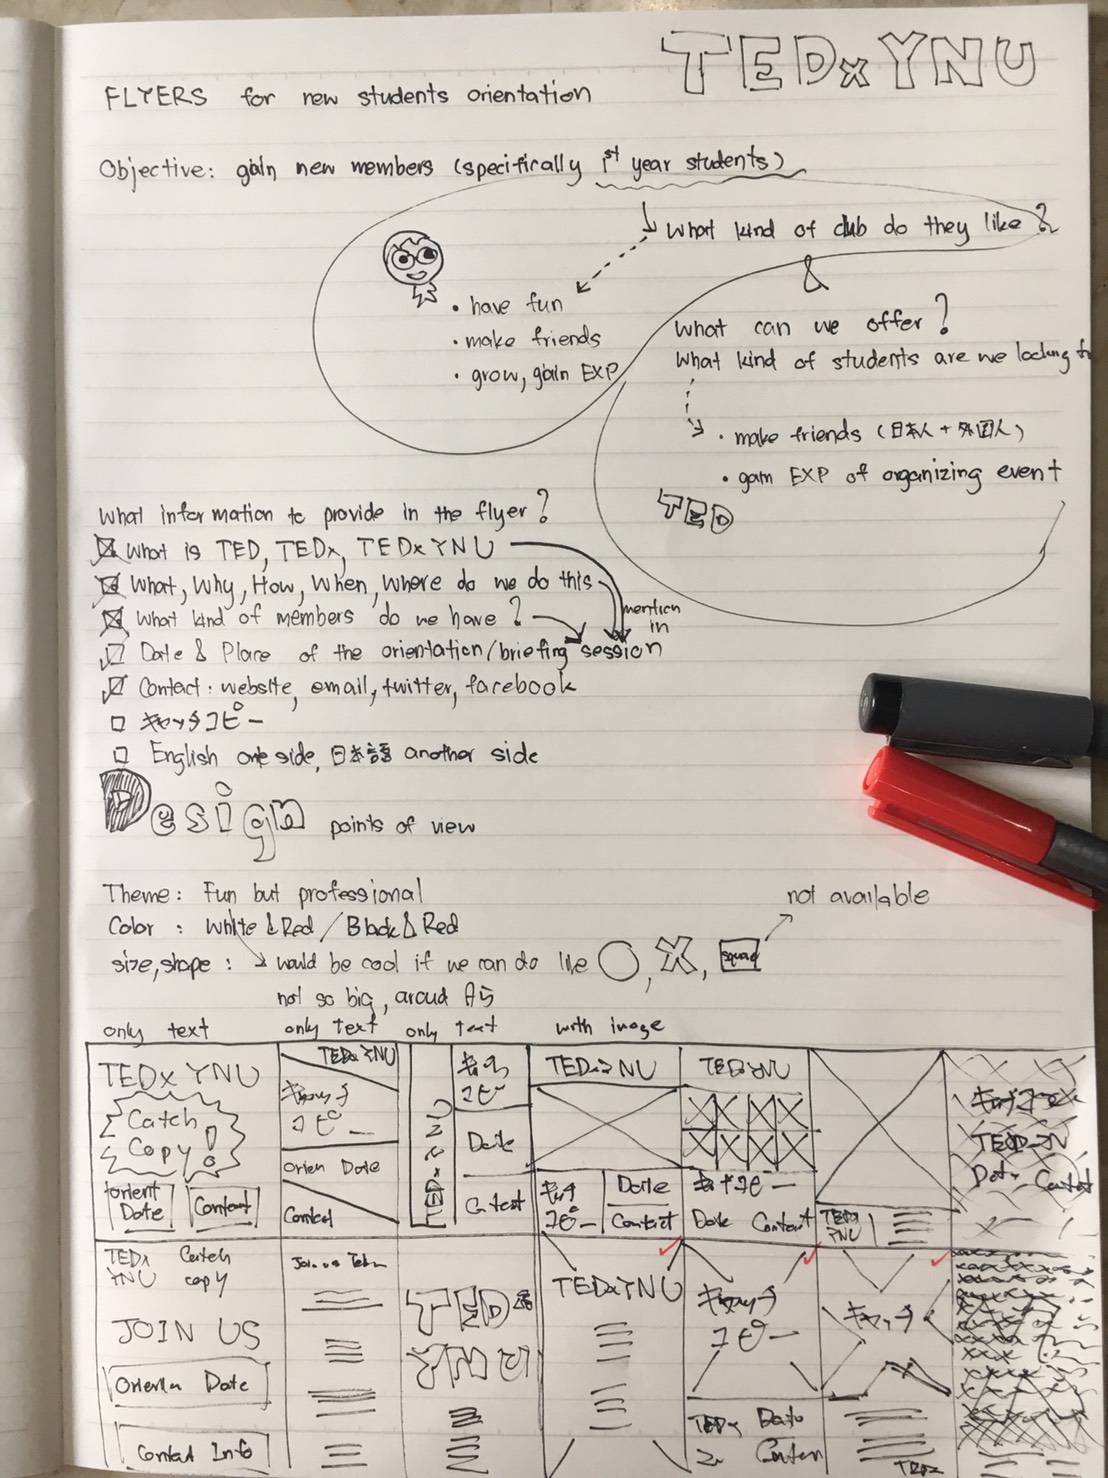 TEDxYNU
FLYERS for new students orientation
Objective: gain new members (specifically 1st year students)
What kind of club do they like?
&
• have fun
• make friends
• grow, gain EXP
What can we offer?
What kind of students are we looking
• make friends (日本人 + 外国人)
• gain EXP of organizing event
TED
What information to provide in the flyer?
What is TED, TEDx, TEDxYNU
What, Why, How, When, Where do we do this
What kind of members do we have?
mention in
Date & Place of the orientation/briefing session
Contact: website, email, twitter, facebook
キャッチコピー
English one side, 日本語 another side
Design points of view
Theme: Fun but professional
Color: White & Red / Black & Red
not available
size, shape: would be cool if we can do like ○, X, square
not so big, aroud A5
only text
only text
only text
with image
TEDxYNU
Catch Copy!
Orient Date
Contact
TEDxYNU
キャッチコピー
Orien Date
Contact
TEDxYNU
キャッチコピー
Date
Contact
TEDxYNU
キャッチコピー
Date
Contact
TEDxYNU
キャッチコピー
Date Contact
TEDx
YNU
キャッチコピー
Contact
TEDx YNU
Catch copy
JOIN US
Orien Date
Contact Info
Join us
TED
YNU
TEDxYNU
キャッチコピー
TEDx
Date
キャッチ
TEDx